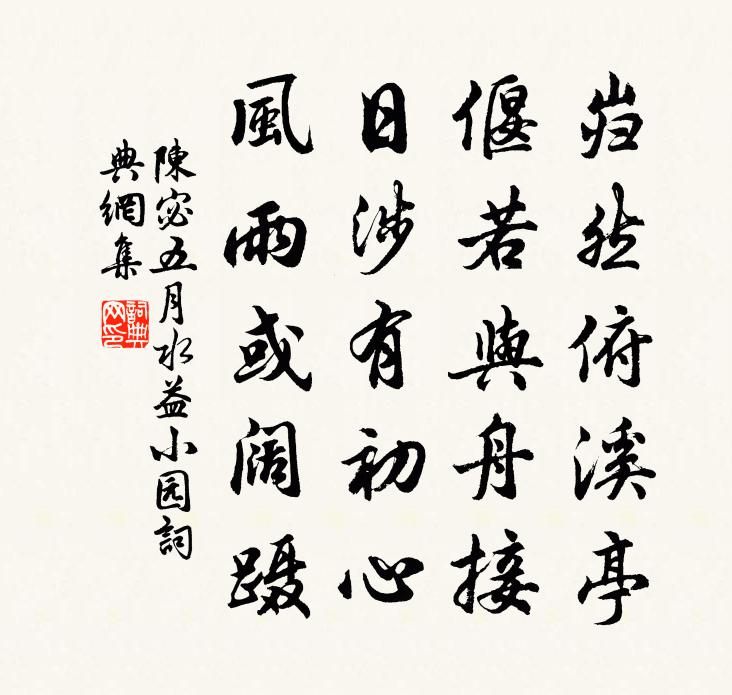 岿然俯溪亭
偃若與舟接
日涉有初心
風雨或阔蹑
陳宓五月水益小园詞
典網集
詞典网印